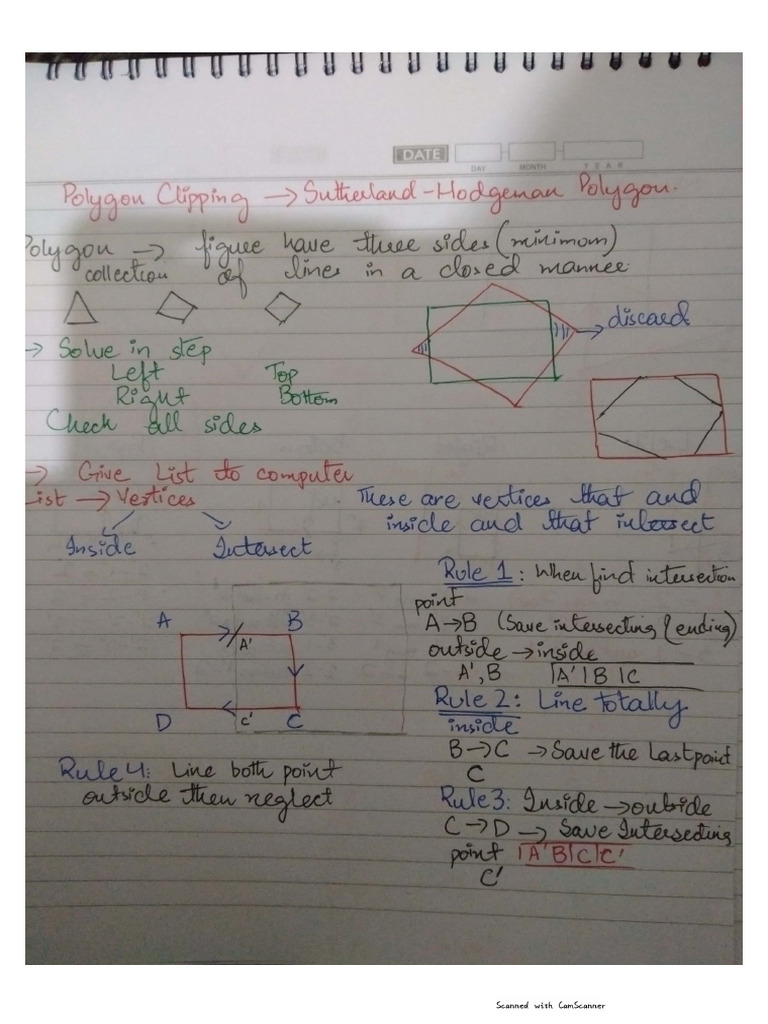 DATE
DAY MONTH YEAR
Polygon Clipping → Sutherland-Hodgeman Polygon.
Polygon → figure have three sides (minimum)
collection of lines in a closed manner.
→ discard
→ Solve in step
Left Top
Right Bottom
Check all sides
→ Give List to computer
List → Vertices
Inside Intersect
These are vertices that and
inside and that intersect
Rule 1: When find intersection
point
A→B (Save intersecting & ending)
outside → inside
A', B |A'|B|C
A B
A'
D C' C
Rule 2: Line totally
inside
B→C → Save the Last point
C
Rule 3: Inside → outside
C→D → Save Intersecting
point |A'B|C|C'
C'
Rule 4: Line both point
outside then neglect
Scanned with CamScanner